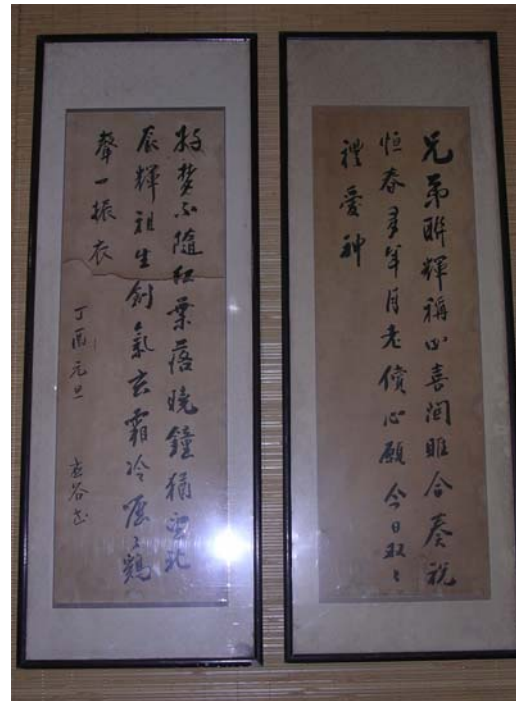 兄弟聯輝稱四喜 関雎合奏祝
恒春多年月老償心願今日双々
禮愛神
梦不隨紅葉落曉鐘猶望北
辰輝祖生劍氣玄霜冷喔々鷄
聲一振衣
丁酉元旦
谷书